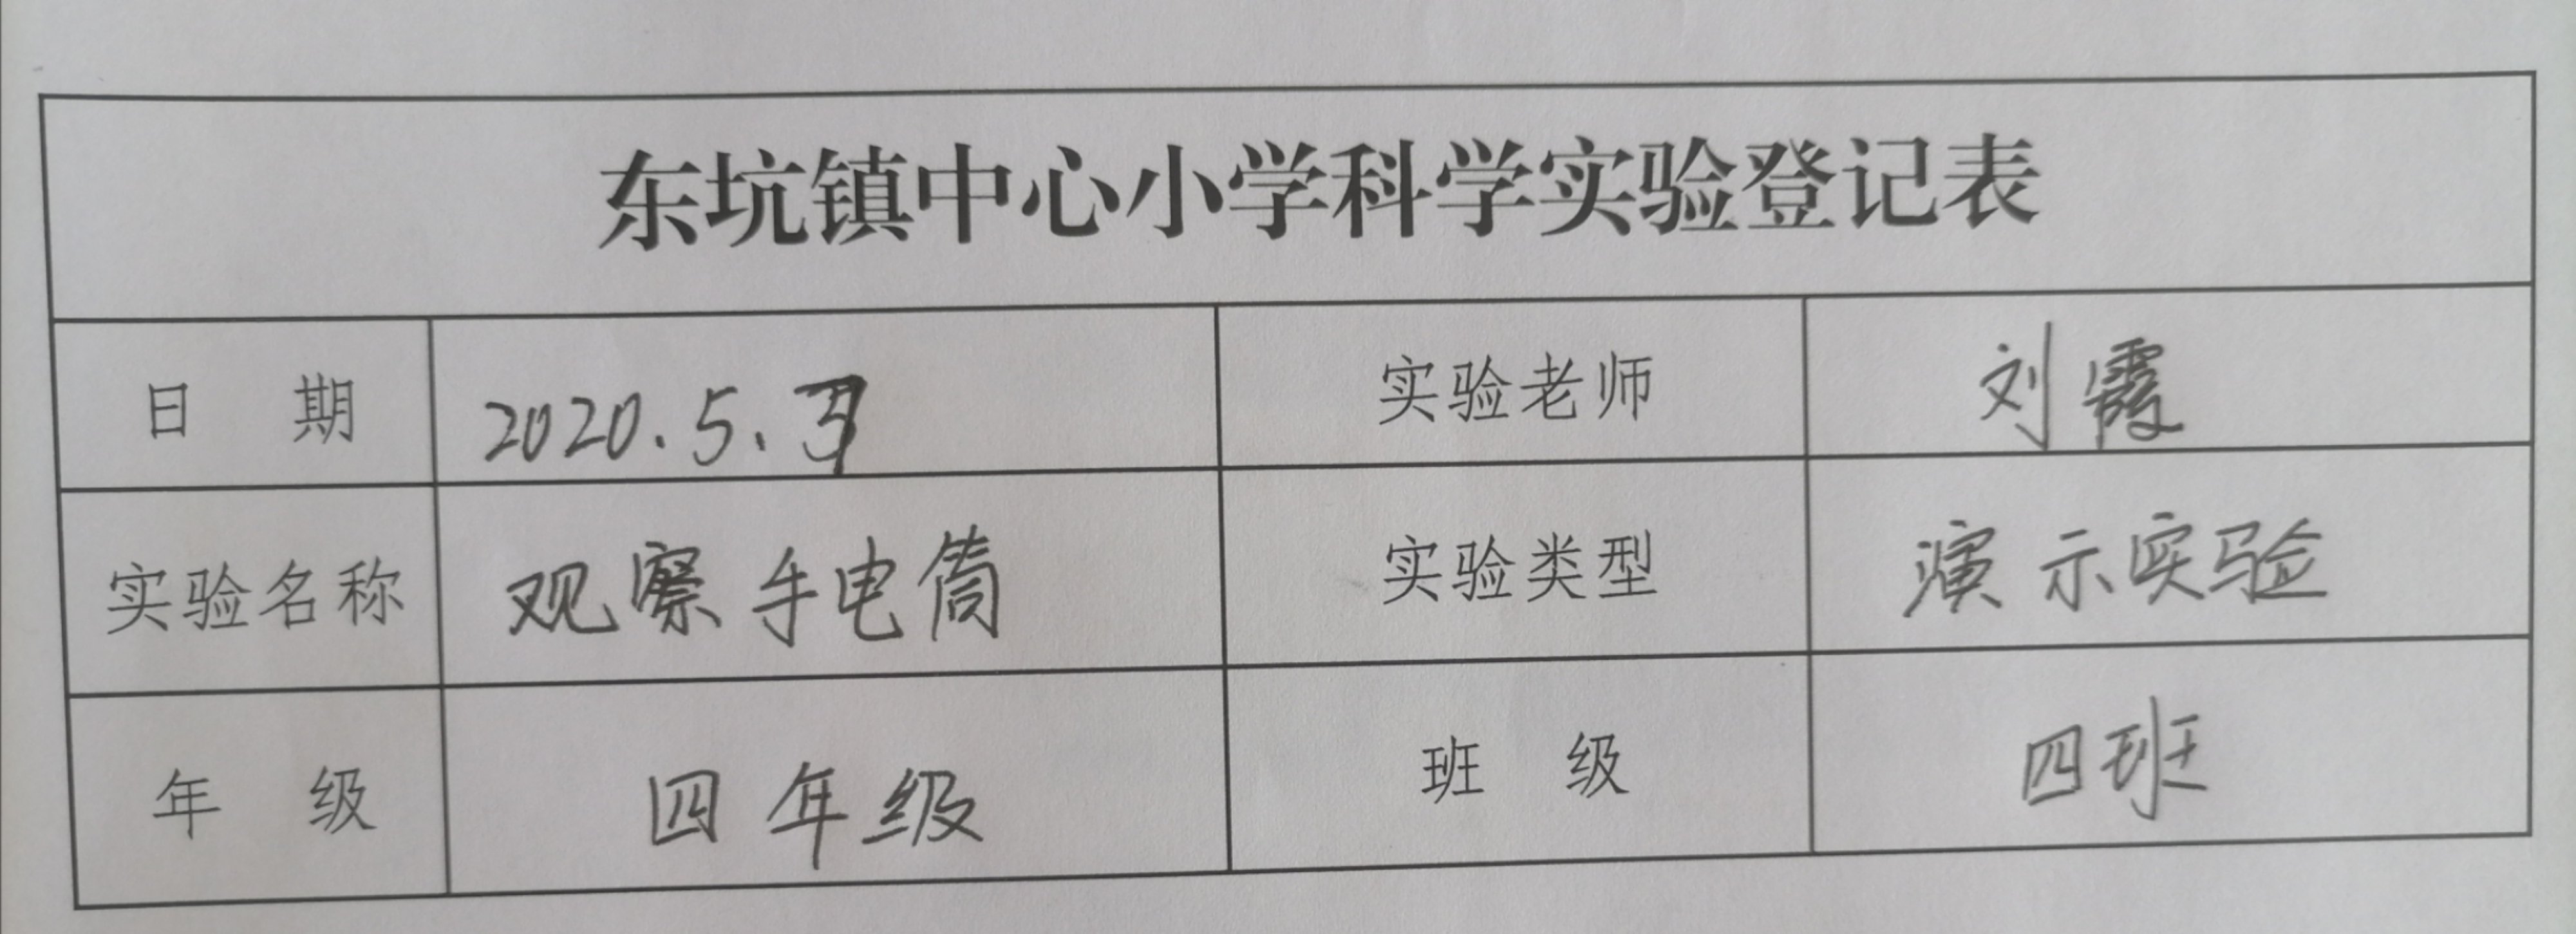 东坑镇中心小学科学实验登记表
日 期 2020.5. 实验老师 刘霞
实验名称 观察手电筒 实验类型 演示实验
年 级 四年级 班 级 四班